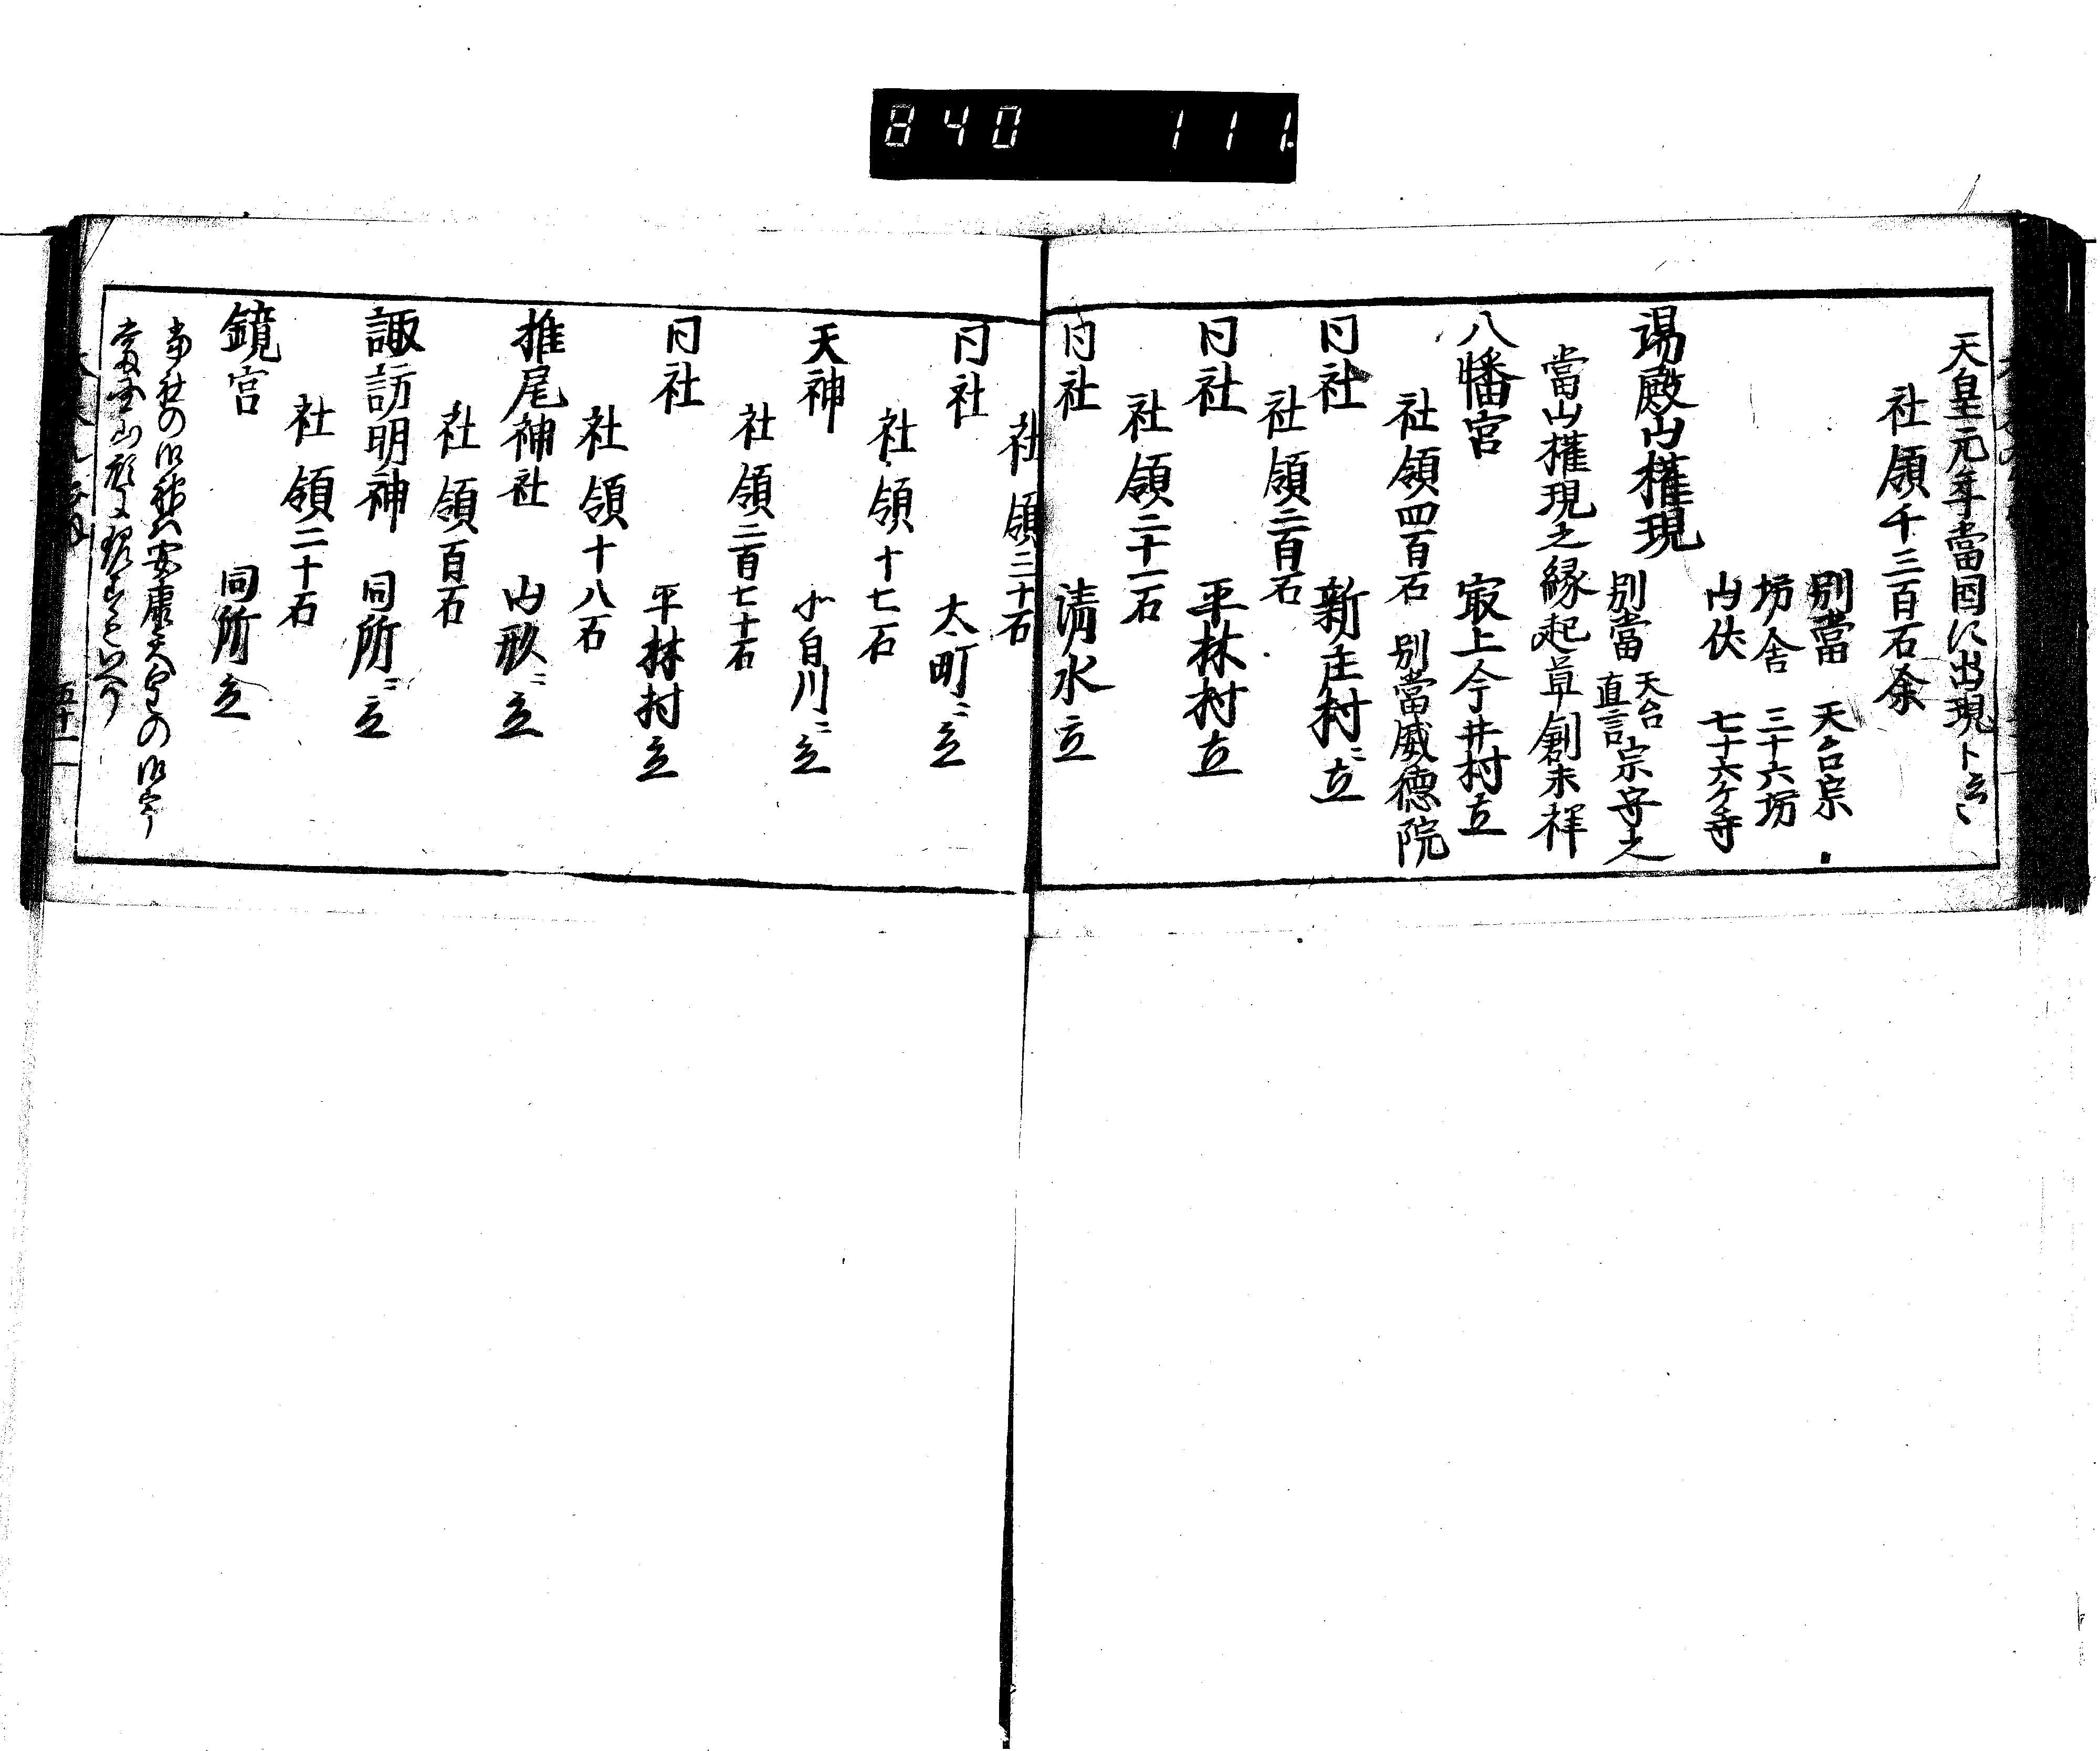 840 111.
天皇元年當国に出現ト云〻
社領千三百石余
別當 天台宗
坊舎 三十六坊
山伏 七十六ケ寺
湯殿山權現
別當 天台真言宗守之
當山權現之縁起草創未祥
八幡宮 㝡上今井村立
社領四百石 別當威德院
同社 新庄村ニ立
社領二百石
同社 平林村立
社領二十一石
同社 清水立
社領三十石
同社 大町ニ立
社領十七石
天神 小白川ニ立
社領二百七十石
同社 平林村立
社領十八石
推尾神社 山形ニ立
社領百石
諏訪明神 同所ニ立
社領二十石
鏡宮 同所立
当社の御鏡ハ安康天皇の御宇